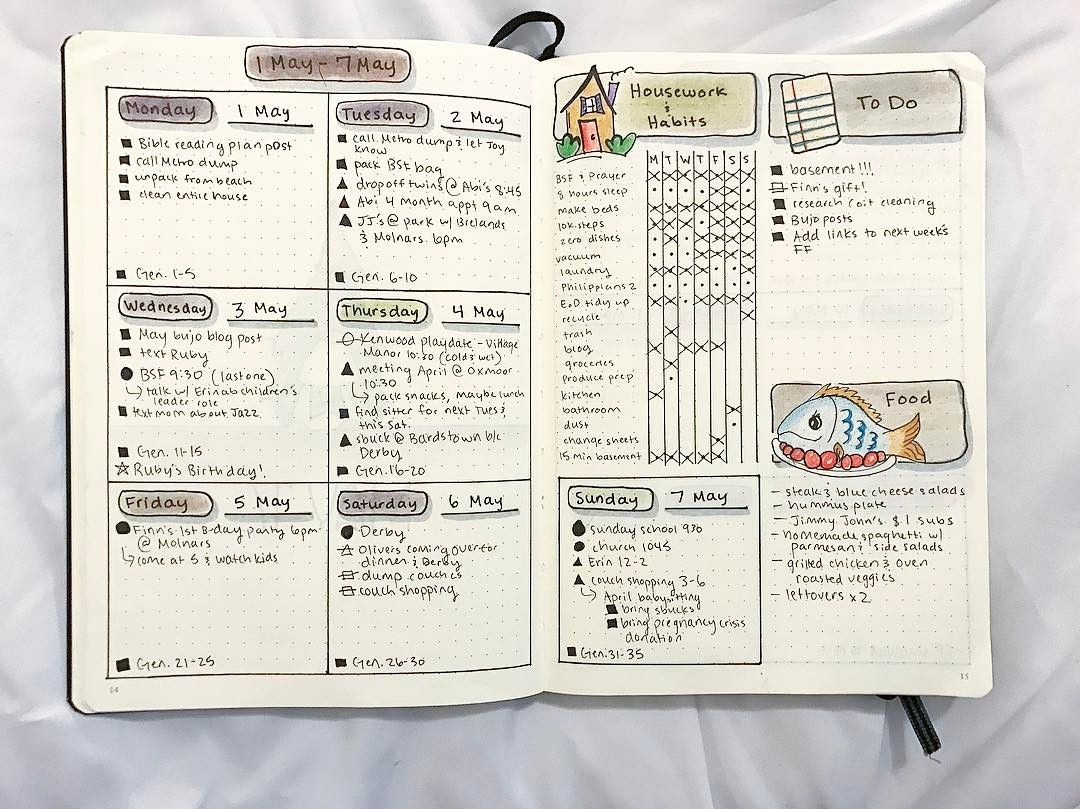 1 May - 7 May
Monday 1 May
Bible reading plan post
call Metro dump
unpack from beach
clean entire house
Gen. 1-5
Tuesday 2 May
call Metro dump & let Joy
know
pack BSF bag
drop off twins @ Abi's 8:45
Abi 4 month appt 9am
JJ's @ park w/ Brelands
& Molnars 6pm
Gen. 6-10
Wednesday 3 May
May bujo blog post
text Ruby
BSF 9:30 (last one)
talk w/ Erin ab children's
leader role
text mom about Jazz
Gen. 11-15
Ruby's Birthday!
Thursday 4 May
Kenwood playdate - Village
Manor 10:30 (cold & wet)
meeting April @ Oxmoor
10:30
pack snacks, maybe lunch
find sitter for next Tues &
this Sat.
sbuck @ Bardstown b/c
Derby
Gen. 16-20
Friday 5 May
Finn's 1st B-day party 6pm
@ Molnars
come at 5 & watch kids
Gen. 21-25
Saturday 6 May
Derby
Olivers coming over for
dinner & Derby
dump couches
couch shopping
Gen. 26-30
14
Housework
&
Habits
M T W T F S S
BSF & Prayer
8 hours sleep
make beds
10K steps
zero dishes
vacuum
laundry
Philippians 2
EoD tidy up
recycle
trash
blog
groceries
produce prep
kitchen
bathroom
dust
change sheets
15 min basement
Sunday 7 May
Sunday school 930
church 1045
Erin 12-2
couch shopping 3-6
April babysitting
bring sbucks
bring pregnancy crisis
donation
Gen. 31-35
To Do
basement!!!
Finn's gift!
research coit cleaning
Bujo posts
Add links to next week's
FF
Food
- steak & blue cheese salads
- hummus plate
- Jimmy John's $1 subs
- homemade spaghetti w/
parmesan & side salads
- grilled chicken & oven
roasted veggies
- leftovers x2
15